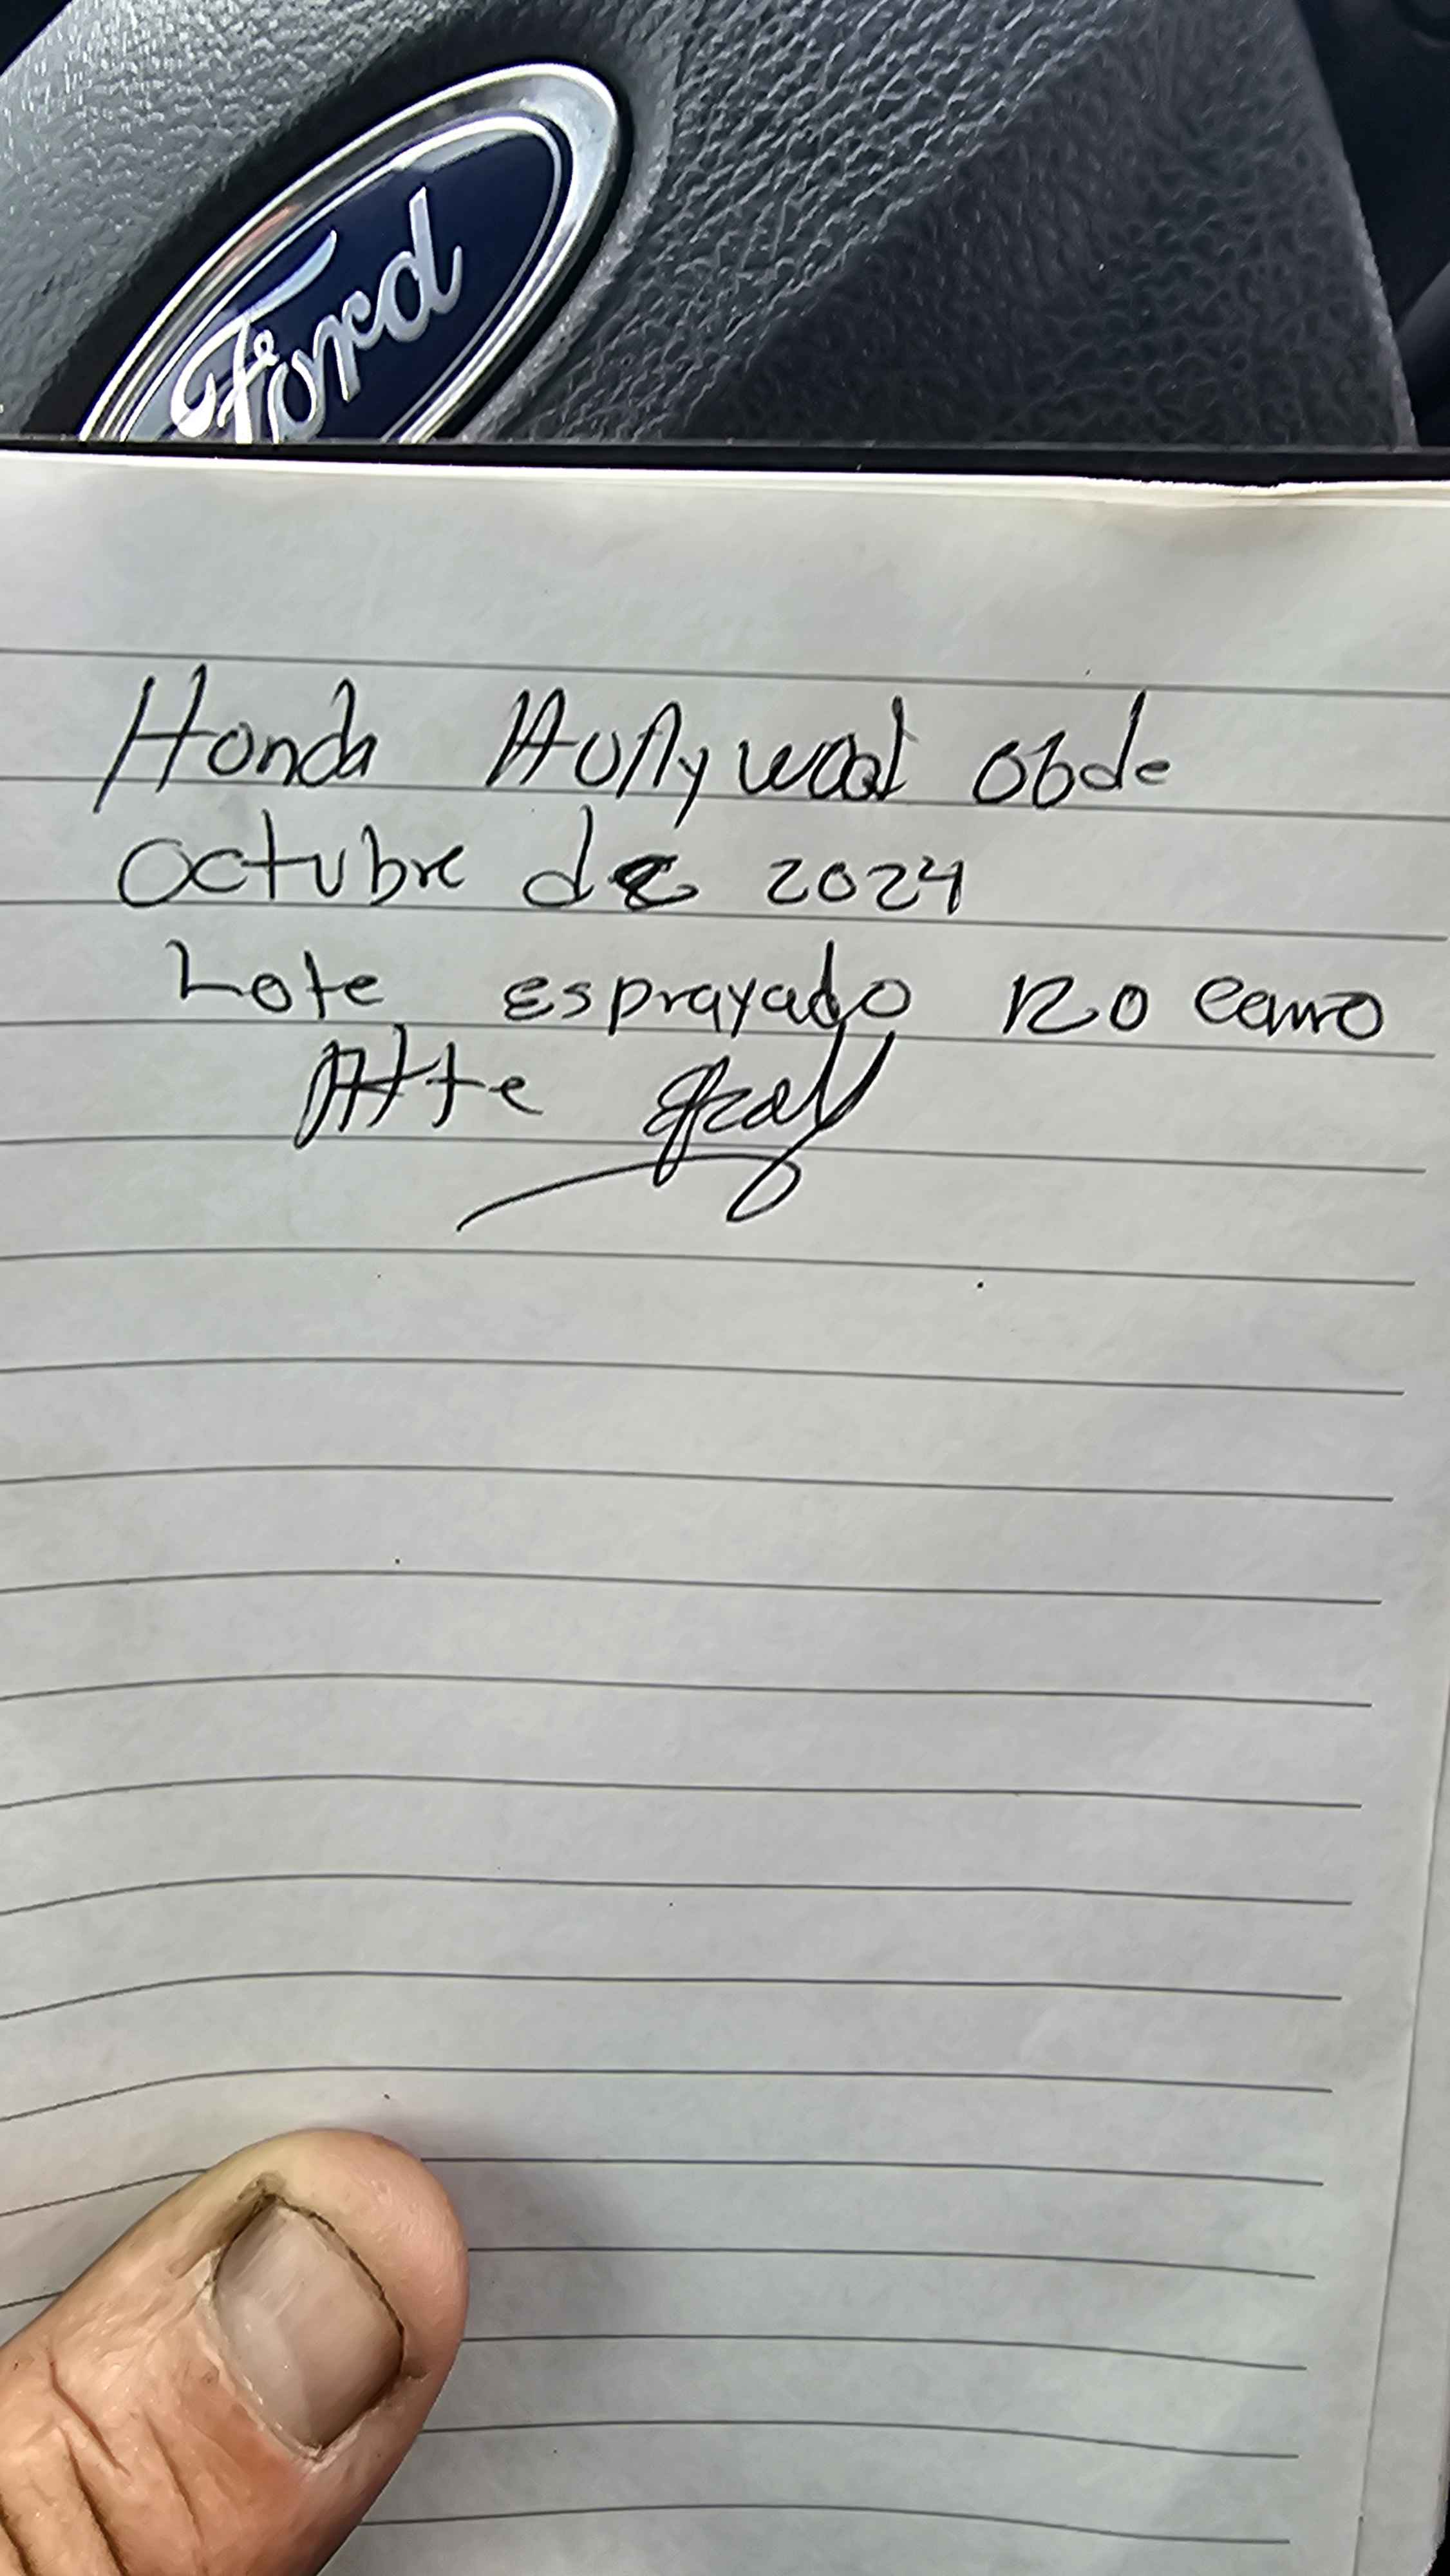 Ford
Honda Hollywood 06 de
octubre de 2024
Lote esprayado 120 carro
Atte